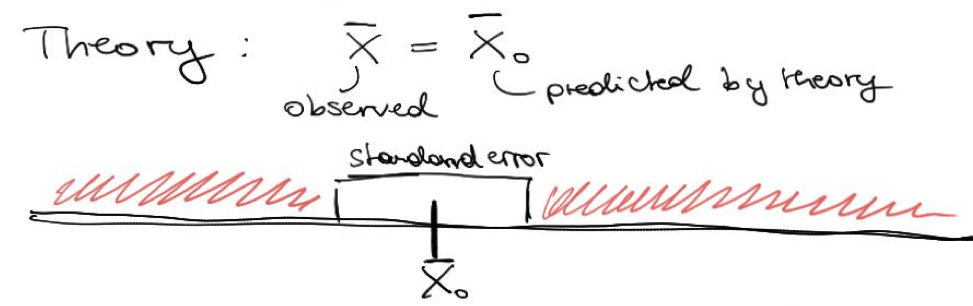 Theory : X̄ = X̄₀
observed
predicted by theory
standard error
X̄₀